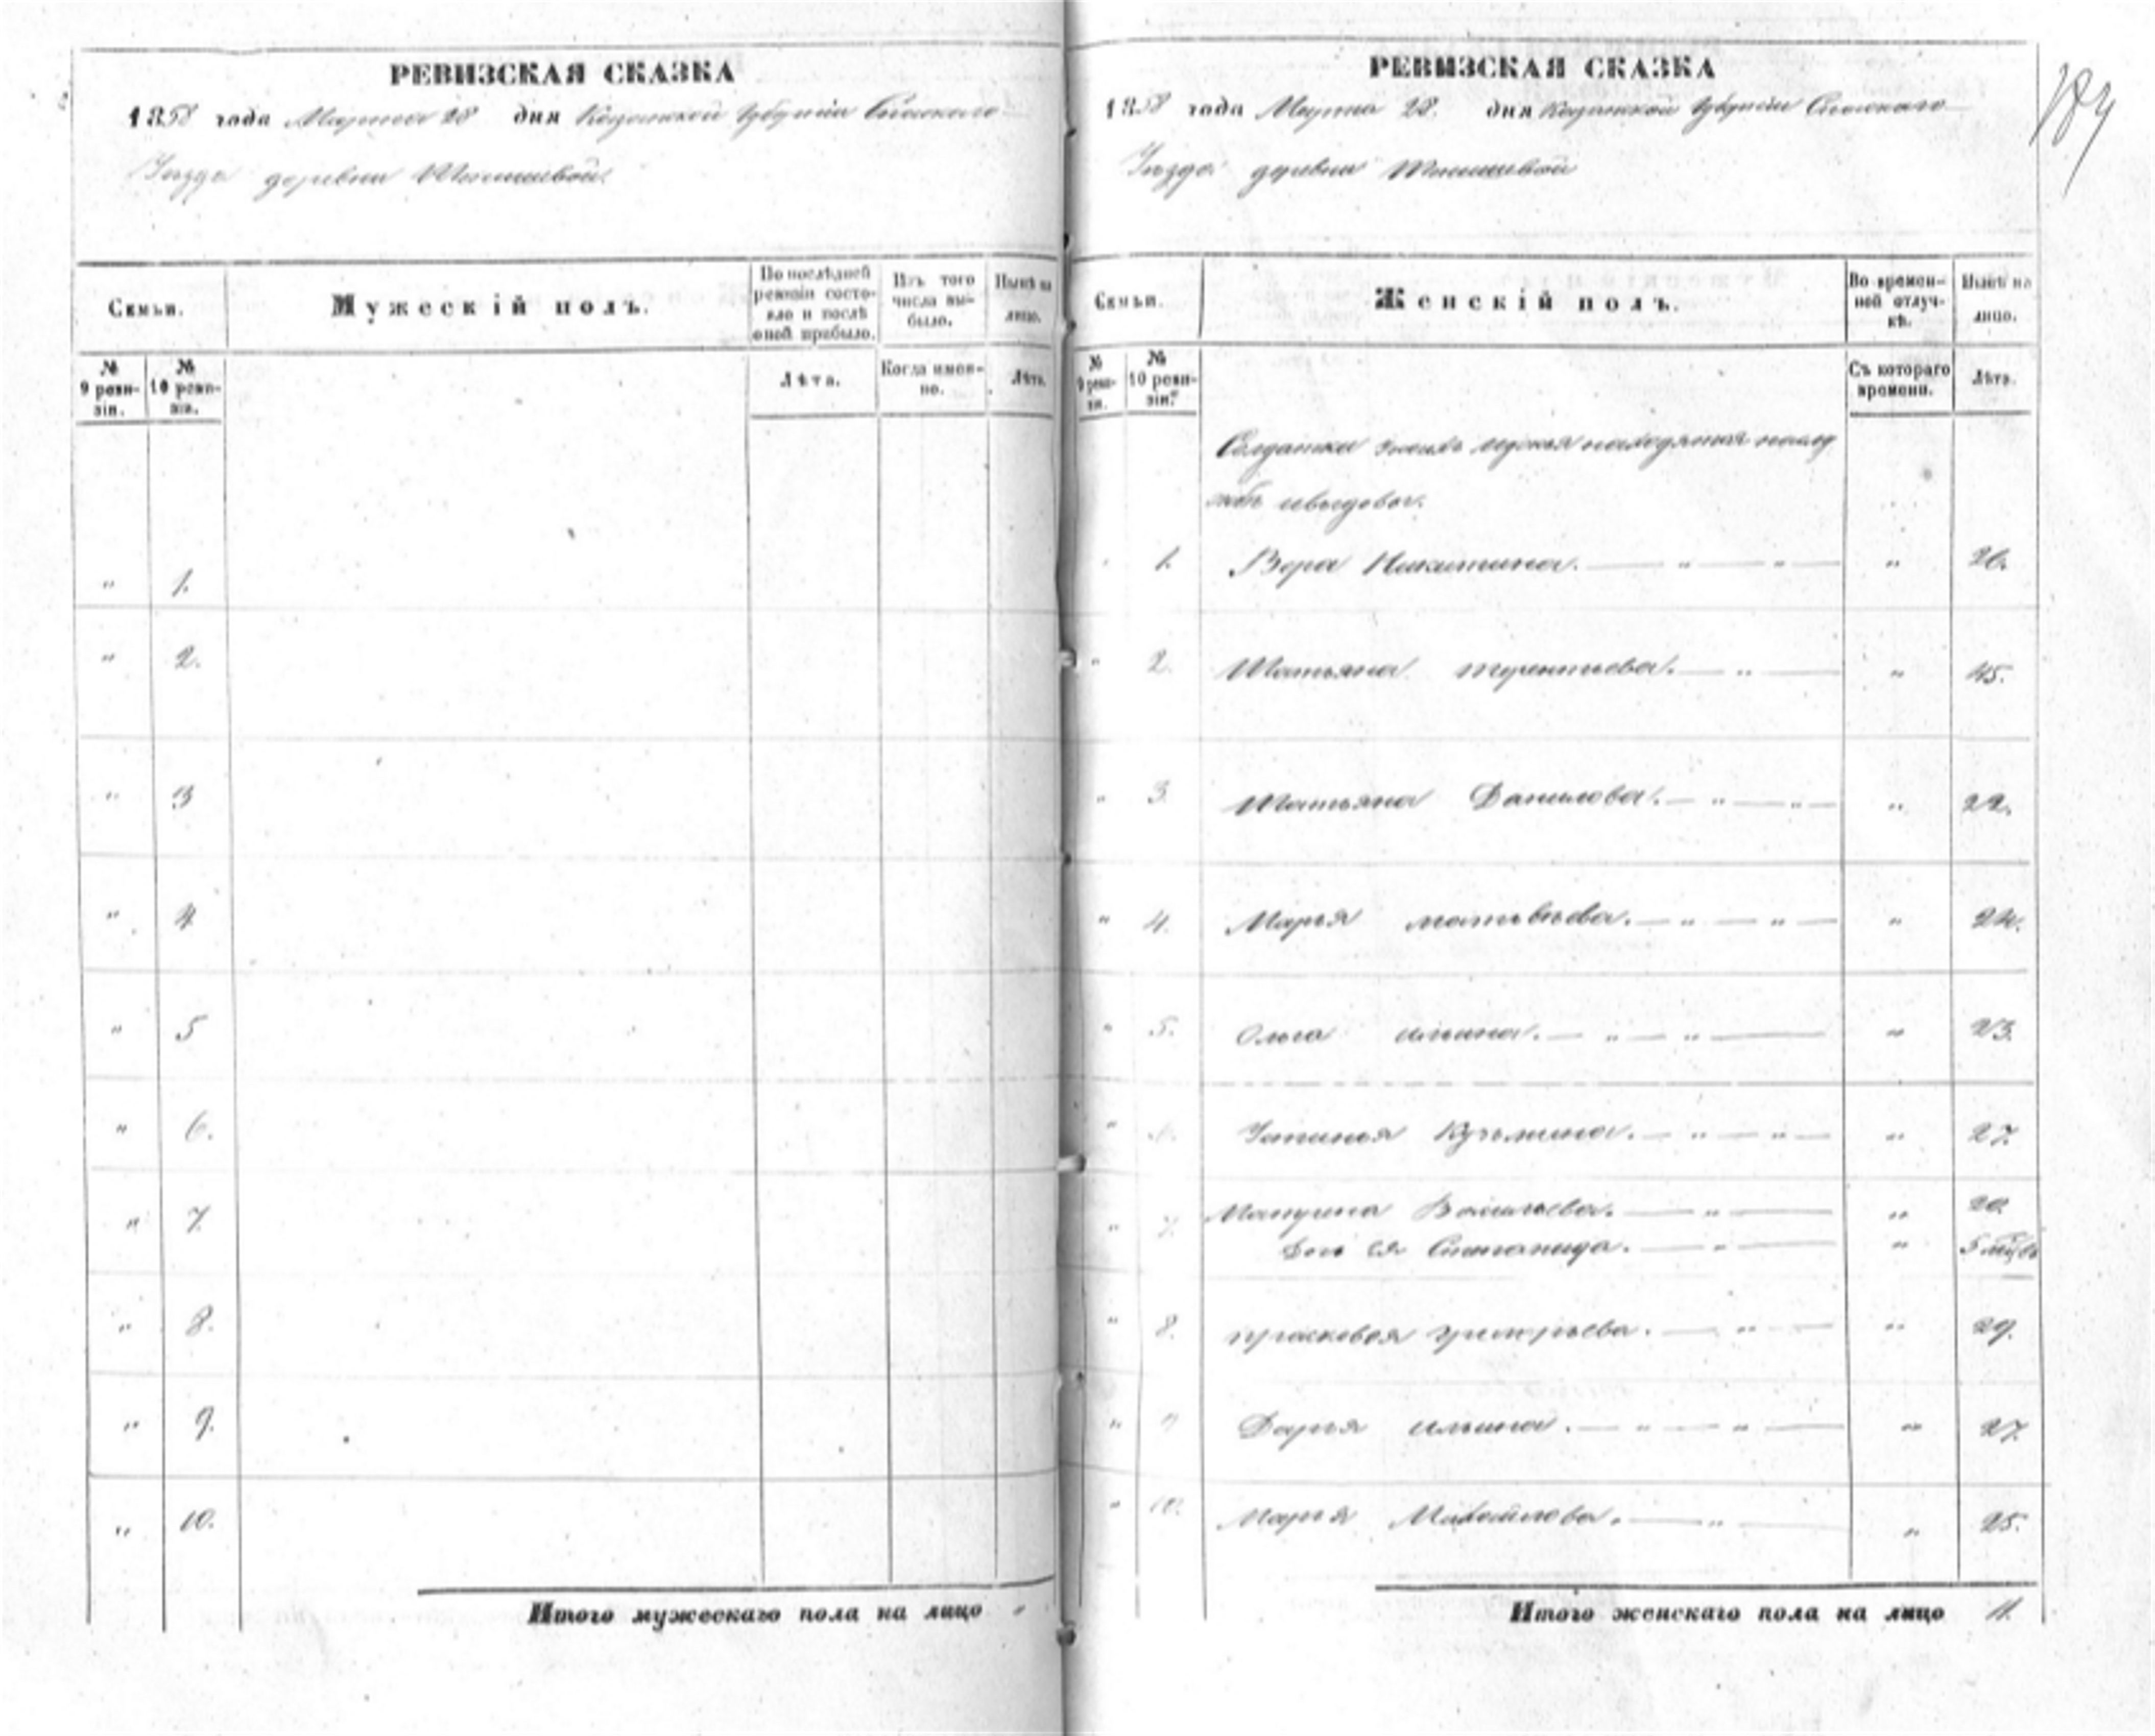 РЕВИЗСКАЯ СКАЗКА
1858 года Марта 28 дня Казанской Губернии Спаского
Уезда деревни
Семьи.
Мужескій полъ.
По послѣдней ревизіи состояло и послѣ оной прибыло.
Изъ того числа выбыло.
Нынѣ на лицо.
№ 9 ревизіи.
№ 10 ревизіи.
Лѣта.
Когда именно.
Лѣта.
" 1.
" 2.
" 3
" 4
" 5
" 6.
" 7.
" 8.
" 9.
" 10.
Итого мужескаго пола на лицо "
РЕВИЗСКАЯ СКАЗКА
1858 года Марта 28. дня Казанской Губернии Спаского
Уезда деревни
184
Семьи.
Женскій полъ.
Во временной отлучкѣ.
Нынѣ на лицо.
№ 9 ревизіи.
№ 10 ревизіи.
Съ котораго времени.
Лѣта.
Солдатки коихъ мужья находятся
" 1. Вера Никитина. — " — " — " 26.
" 2. Татьяна терентьева. — " — " 45.
" 3. Татьяна Данилова. — " — " — " 22.
" 4. Марья матвѣева. — " — " — " 24.
" 5. Ольга ильина. — " — " — " 23.
" Устинья Кузьмина. — " — " — " 27.
" 7. Матрена Васильева. — " — " 20.
Дочь ея Степанида. — " — " 5 мцвъ
" 8. прасковья григорьева. — " — " 29.
" 9 Дарья ильина. — " — " — " 27.
" 10. Марья Михайлова. — " — " 25.
Итого женскаго пола на лицо 11.